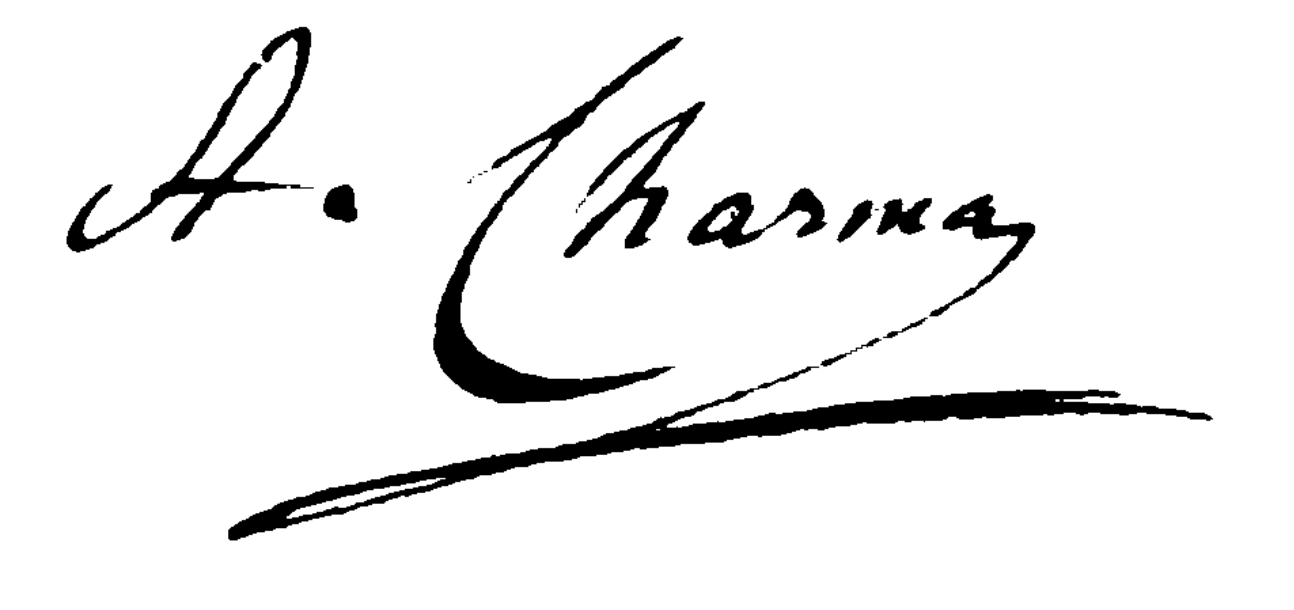 A. Charma